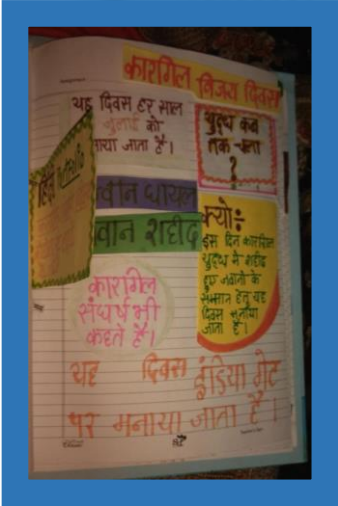 कारगिल विजय दिवस
यह दिवस हर साल
जुलाई को
नाया जाता है।
युद्ध कब
तक चला
?
हिंदी
वान घायल
वान शहीद
क्यों:
इस दिन कारगिल
युद्ध में शहीद
हुए जवानों के
सम्मान हेतु यह
दिवस मनाया
जाता है।
कारगिल
संघर्ष भी
कहते हैं।
यह दिवस इंडिया गेट
पर मनाया जाता है।